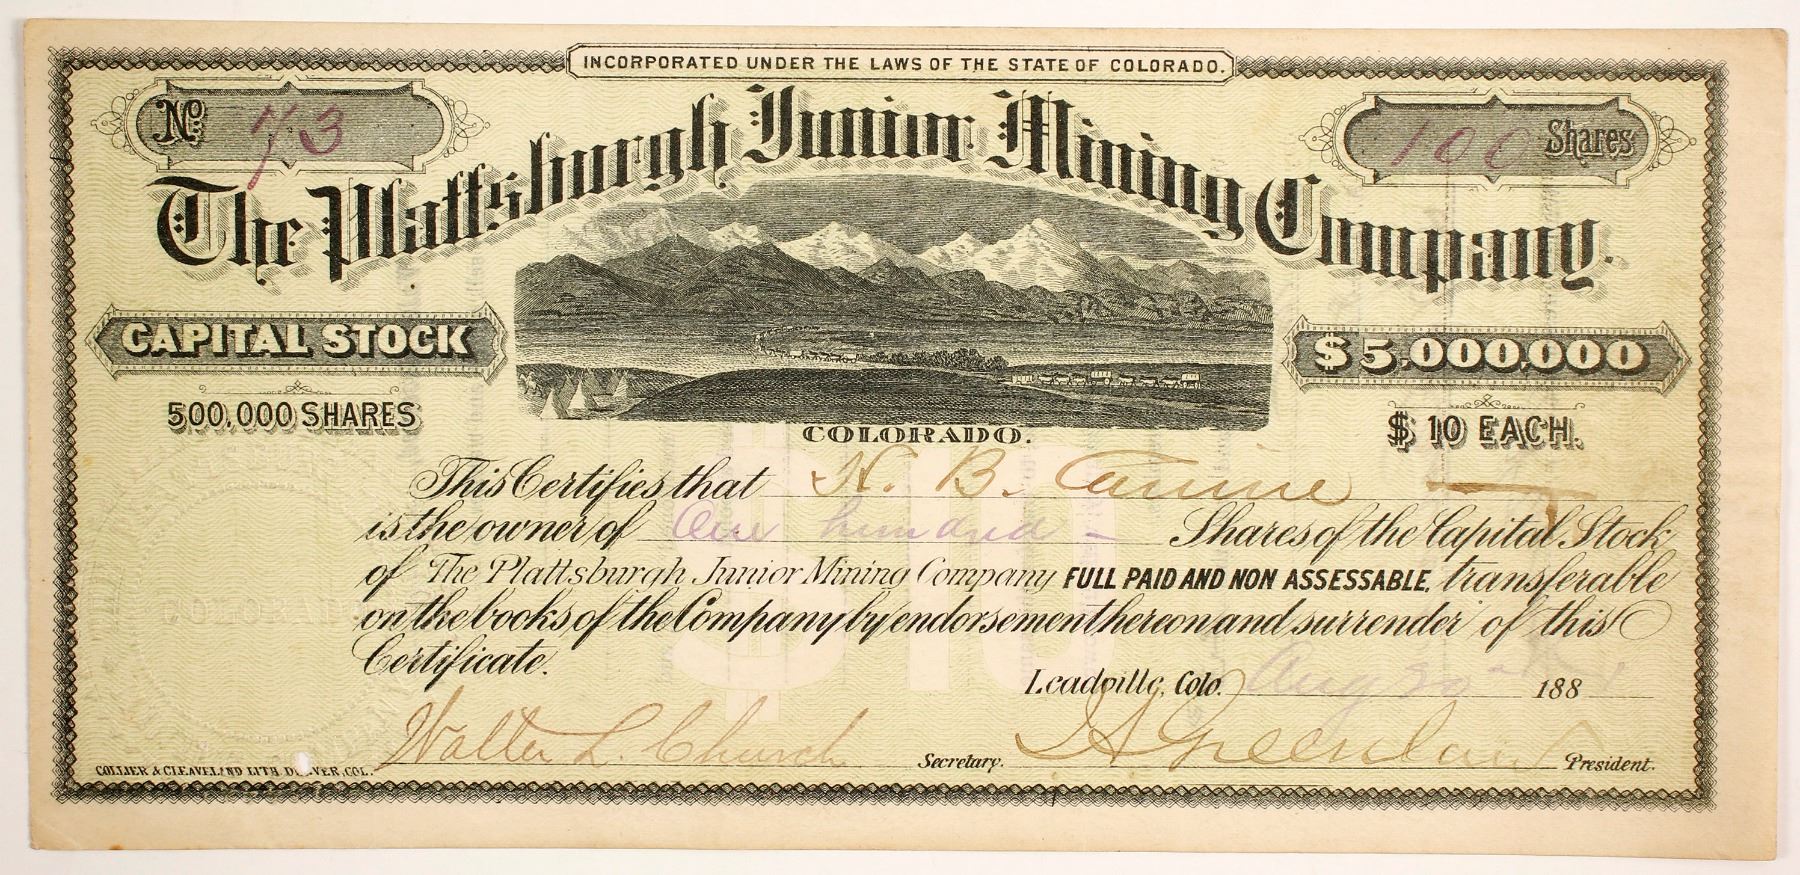 INCORPORATED UNDER THE LAWS OF THE STATE OF COLORADO.
No. 73
100 Shares
The Plattsburgh Junior Mining Company.
CAPITAL STOCK
$5,000,000
500,000 SHARES
$10 EACH.
COLORADO.
This Certifies that H. B. 
is the owner of One hundred – Shares of the Capital Stock
of The Plattsburgh Junior Mining Company FULL PAID AND NON ASSESSABLE, transferable
on the books of the Company by endorsement hereon and surrender of this
Certificate.
$10
Leadville, Colo. Aug 20 188
Walter L. Church Secretary. President.
COLLIER & CLEAVELAND LITH. DENVER, COL.